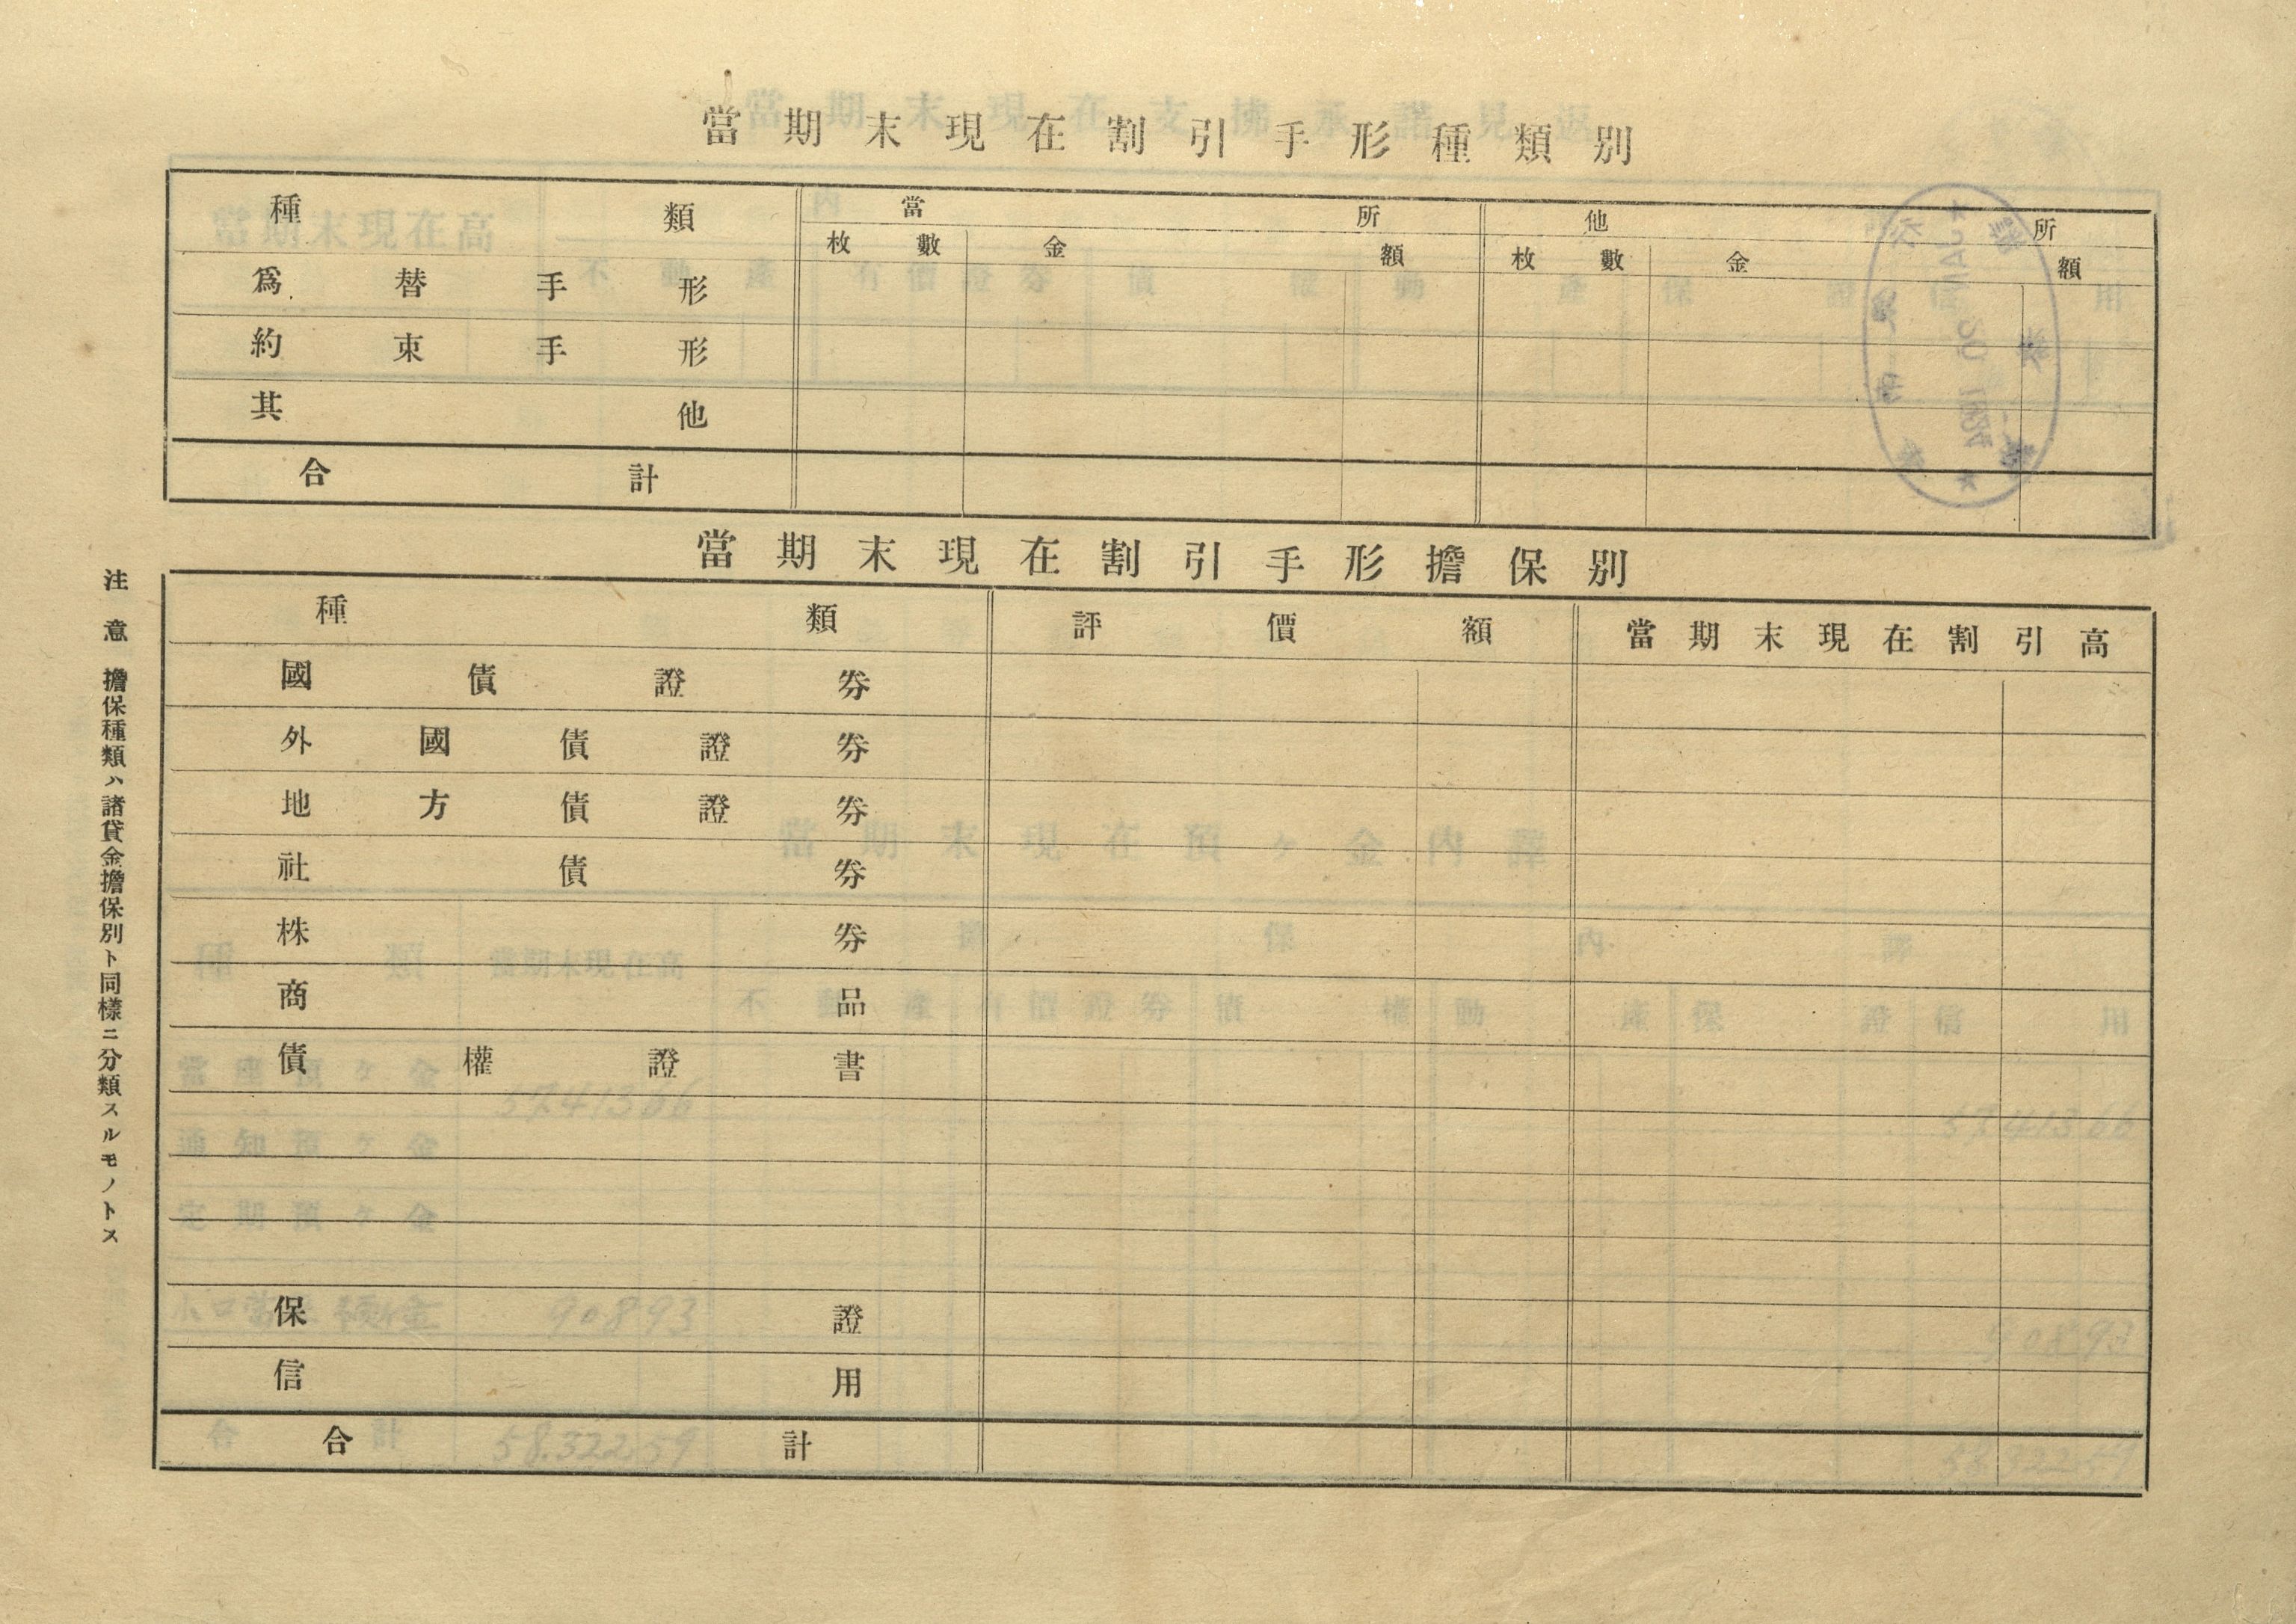 當期末現在割引手形種類別
種類 當所 他所
枚數 金額 枚數 金額
爲替手形
約束手形
其他
合計
當期末現在割引手形擔保別
種類 評價額 當期末現在割引高
國債證券
外國債證券
地方債證券
社債券
株券
商品
債權證書
保證
信用
合計
注意 擔保種類ハ諸貸金擔保別ト同樣ニ分類スルモノトス